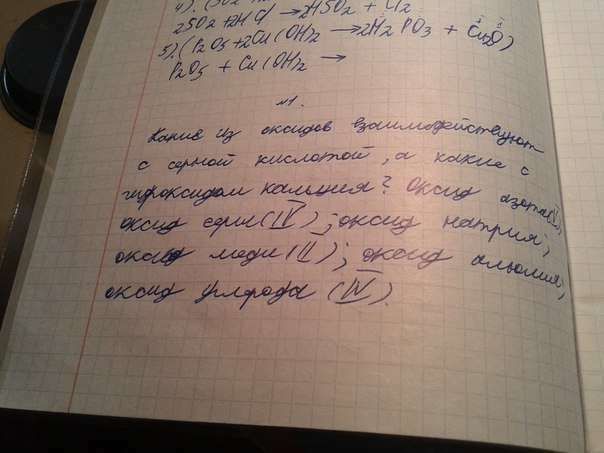 2SO2+2HCl → 2HSO2 + Cl2
5).(P2O5+2Cu(OH)2 → 2H2PO3 + Cu2O)
P2O5 + Cu(OH)2 →
№1.
Какие из оксидов взаимодействуют
с серной кислотой, а какие с
гидроксидом кальция? Оксид
оксид серы (IV); оксид натрия;
оксид меди (II); оксид алюмия;
оксид углерода (IV).